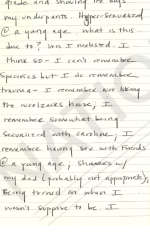 grade and showing the boys
my underpants. Hyper-sexualized
@ a young age. what is this
due to? was I molested. I
think so - I can't remember
specifics but I do remember
trauma - I remember not liking
the house, I
remember somewhat being
sexualized with caroline, I
remember having sex with friends
@ a young age, showers w/
my dad (probably not appropriate),
Being turned on when I
wasn't suppose to be. I